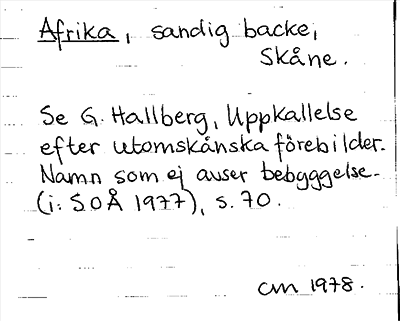 Afrika, sandig backe,
Skåne.
Se G. Hallberg, Uppkallelse
efter utomskånska förebilder.
Namn som ej avser bebyggelse.
(i: SOÅ 1977), s. 70.
cm 1978.